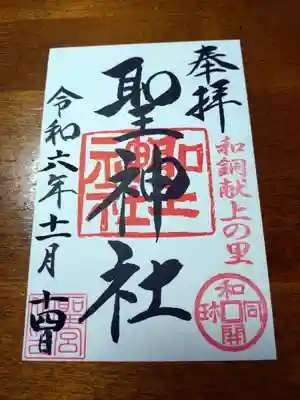 奉拝
和銅献上の里
聖神社
令和六年十一月十四日
和同開珎